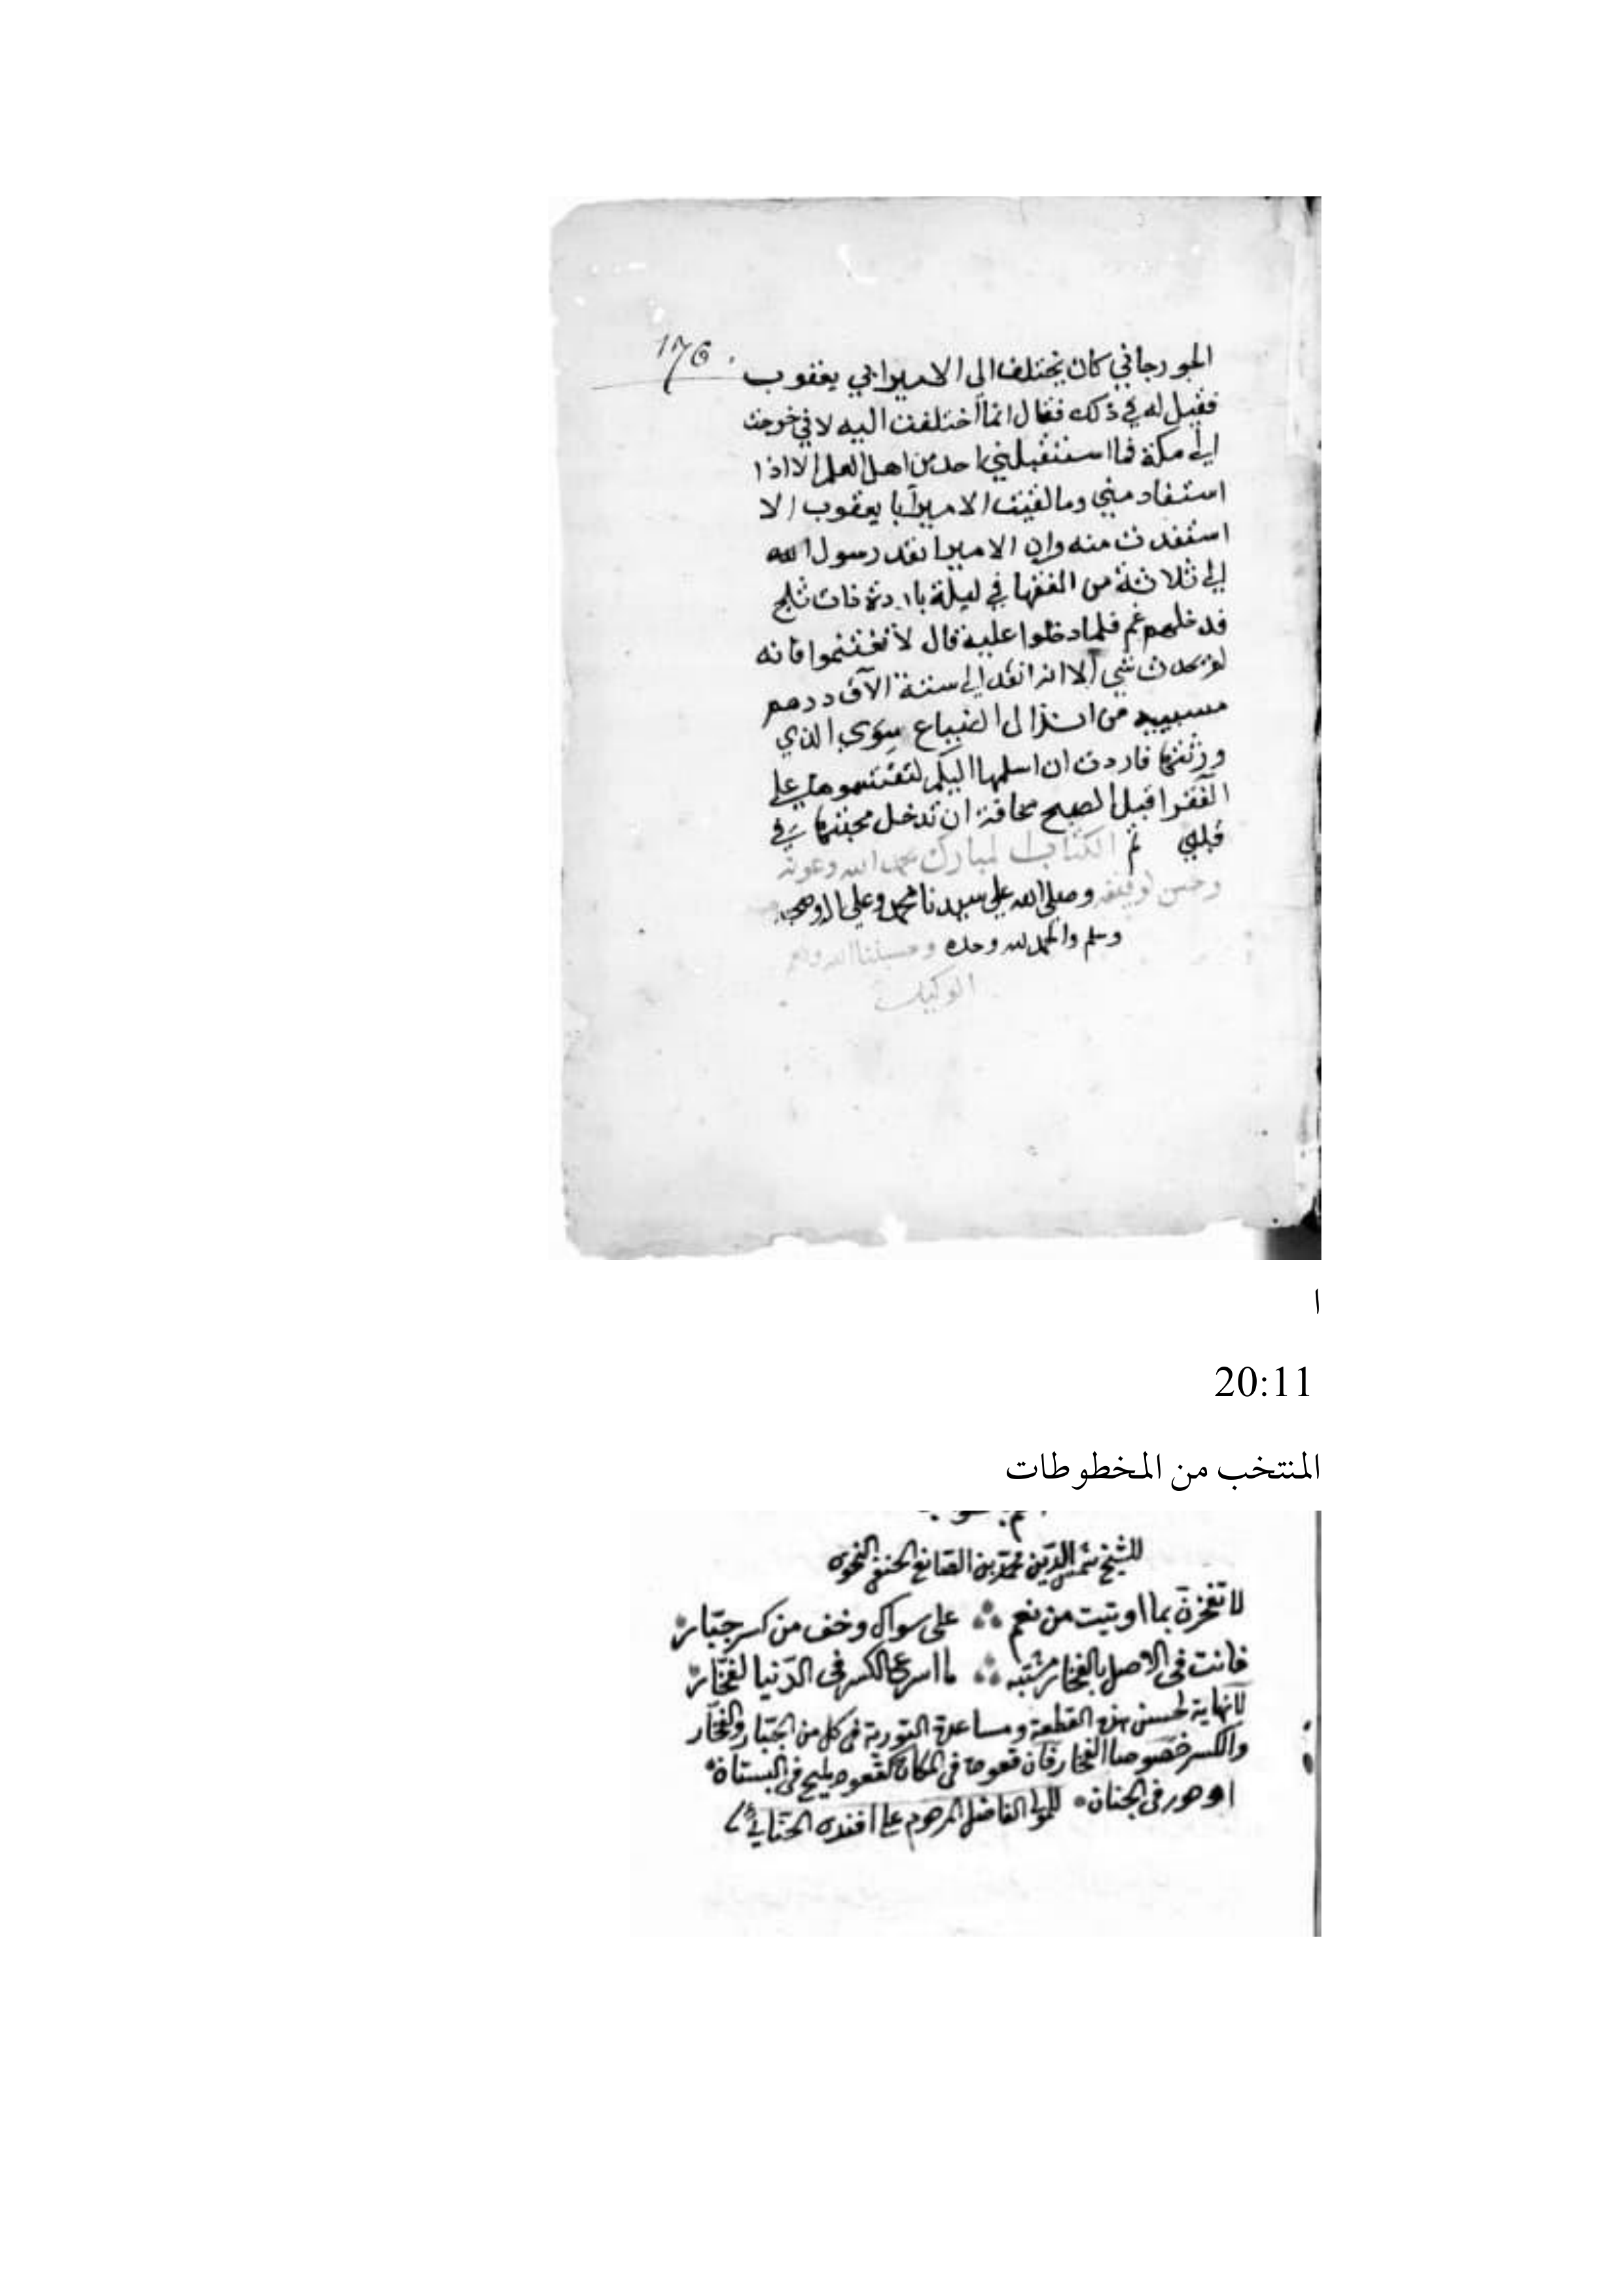 176
الجورجاني كان يختلف الى الامير ابي يعقوب
فقيل له في ذلك فقال انما اختلفت اليه لاني خرجت
الى مكة فما استقبلني احد من اهل العلم الا اذا
استفاد مني وما لقيت الامير ابا يعقوب الا
استفدت منه وان الامير انفد رسول الله
الى ثلاثة من الفقها في ليلة باردة ذات ثلج
فدخلهم غم فلما دخلوا عليه قال لا تغتنموا فانه
لم يحدث شي الا انه انفد الي ستة آلاف درهم
من انزال الضياع سوى الذي
ورثتها فاردت ان اسلمها اليكم لتقتسموها على
الفقرا قبل الصبح مخافة ان تدخل محبتها في
قلبي تم الكتاب المبارك بحمد الله وعونه
وحسن توفيقه وصلى الله على سيدنا محمد وعلى اله وصحبه
وسلم والحمد لله وحده وحسبنا الله ونعم
الوكيل
ا
20:11
المنتخب من المخطوطات
للشيخ شمس الدين محمد بن الصائغ الحنفى النحوى
لا تفخرن بما اوتيت من نعم ∴ على سواك وخف من كسر جبّار
فانت فى الاصل بالفخار مشتبه ∴ ما اسرع الكسر فى الدّنيا لفخّار
لانهاية لحسن هذه القطعة ومساعدة التورية فى كل من الجبّار والفخّار
والكسر خصوصا الفخار فان قعوده فى المكان كقعود مليح فى البستان
او حور فى الجنان للمولى الفاضل المرحوم على افندى الحنّائى